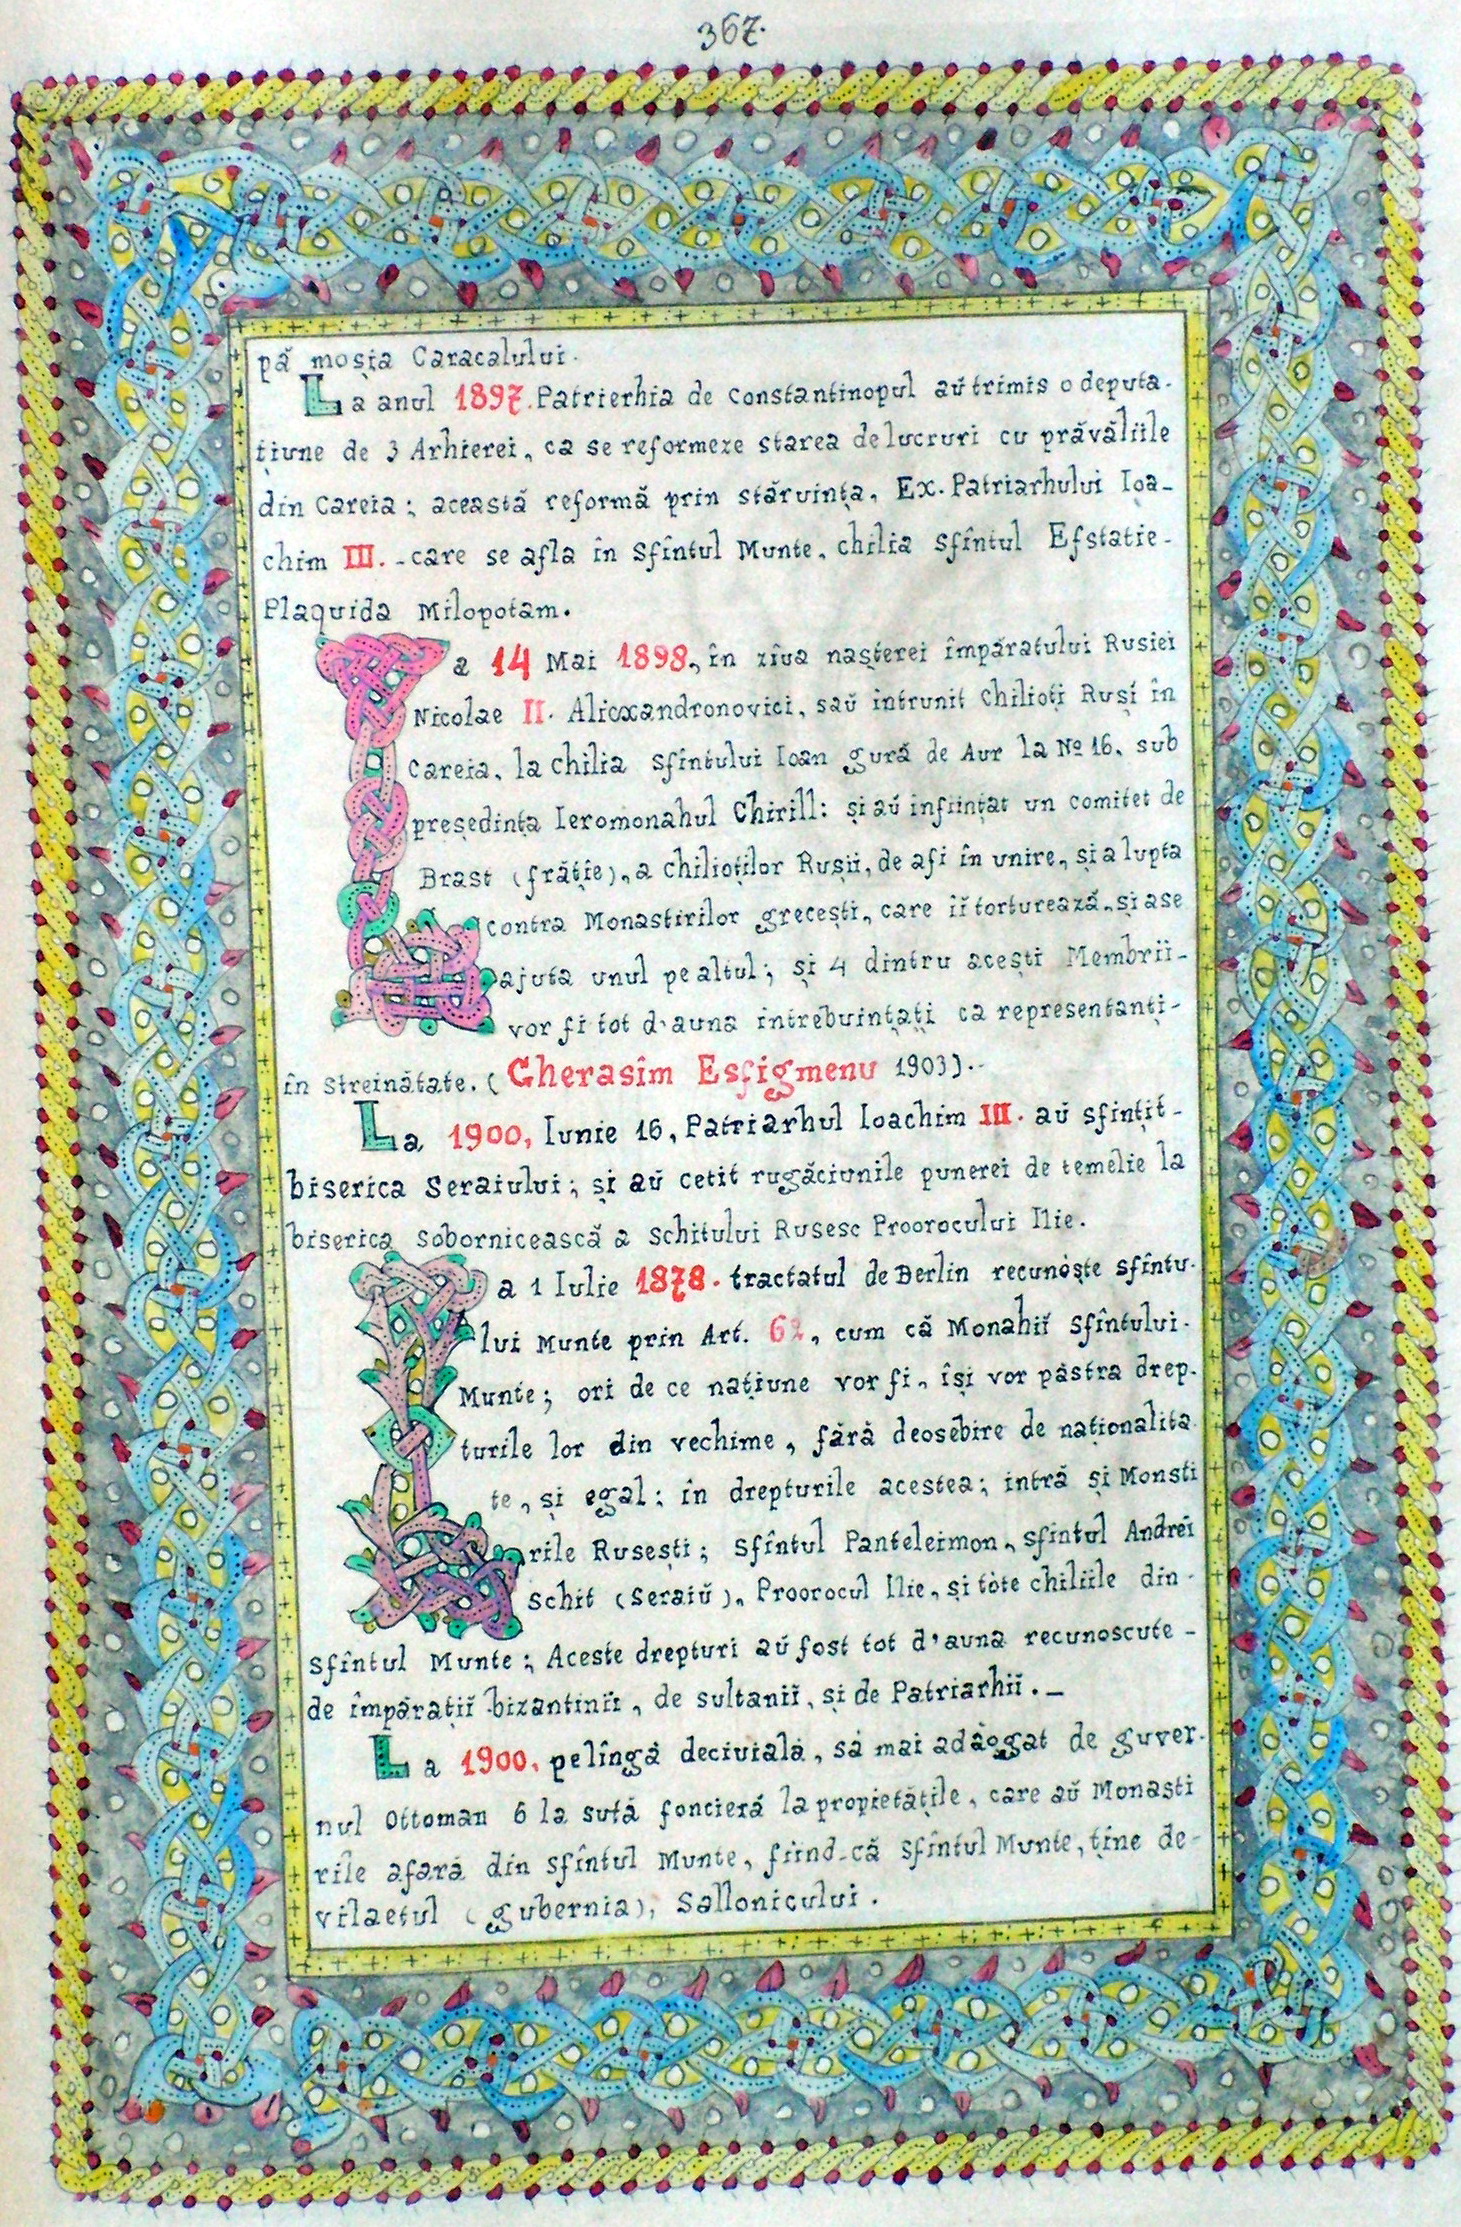 367.
pă moșia Caracalului.
La anul 1897. Patrierhia de Constantinopul aŭ trimis o deputa-
țiune de 3 Arhierei, ca se reformeze starea de lucruri cu prăvăliile
din Careia; această reformă prin stăruința, Ex. Patriarhului Ioa-
chim III. - care se afla în Sfîntul Munte, chilia sfîntul Efstatie-
Plaquida Milopotam.
La 14 Mai 1898, în ziua nașterei împăratului Rusiei
Nicolae II. Alicxandronovici, saŭ intrunit Chilioți Ruși în
Careia, la chilia Sfîntului Ioan gură de Aur la № 16, sub
președința Ieromonahul Chirill: și aŭ inființat un comitet de
Brast (frăție), a chilioților Rușii, de afi în unire, și a lupta
contra Monastirilor grecești, care iĭ torturează, și ase
ajuta unul pe altul; și 4 dintru acești Membrii-
vor fi tot d'auna intrebuințați ca representanți-
în streinătate. (Gherasîm Esfigmenu 1903).-
La 1900, Iunie 16, Patriarhul Ioachim III. aŭ sfințit-
biserica Seraiului; și aŭ cetit rugăciunile punerei de temelie la
biserica Sobornicească a Schitului Rusesc Proorocului Ilie.
La 1 Iulie 1878. tractatul de Berlin recunòște sfîntu-
lui Munte prin Art. 62, cum că Monahiĭ Sfîntului-
Munte; ori de ce națiune vor fi, își vor păstra drep-
turile lor din vechime, fără deosebire de naționalita
te, și egal: în drepturile acestea; intră și Monsti
rile Rusești; Sfîntul Panteleimon, sfîntul Andrei
Schit (Seraiŭ), Proorocul Ilie, și tòte chiliile din-
sfîntul Munte; Aceste drepturi aŭ fost tot d'auna recunoscute-
de împărațiĭ bizantiniĭ, de sultaniĭ, și de Patriarhiĭ._
La 1900, pelîngă deciuială, să mai adàogat de guver-
nul Ottoman 6 la sută foncieră la propietățile, care aŭ Monasti
rile afară din sfîntul Munte, fiind-că sfîntul Munte, ține de-
vilaetul (gubernia), Sallonicului.